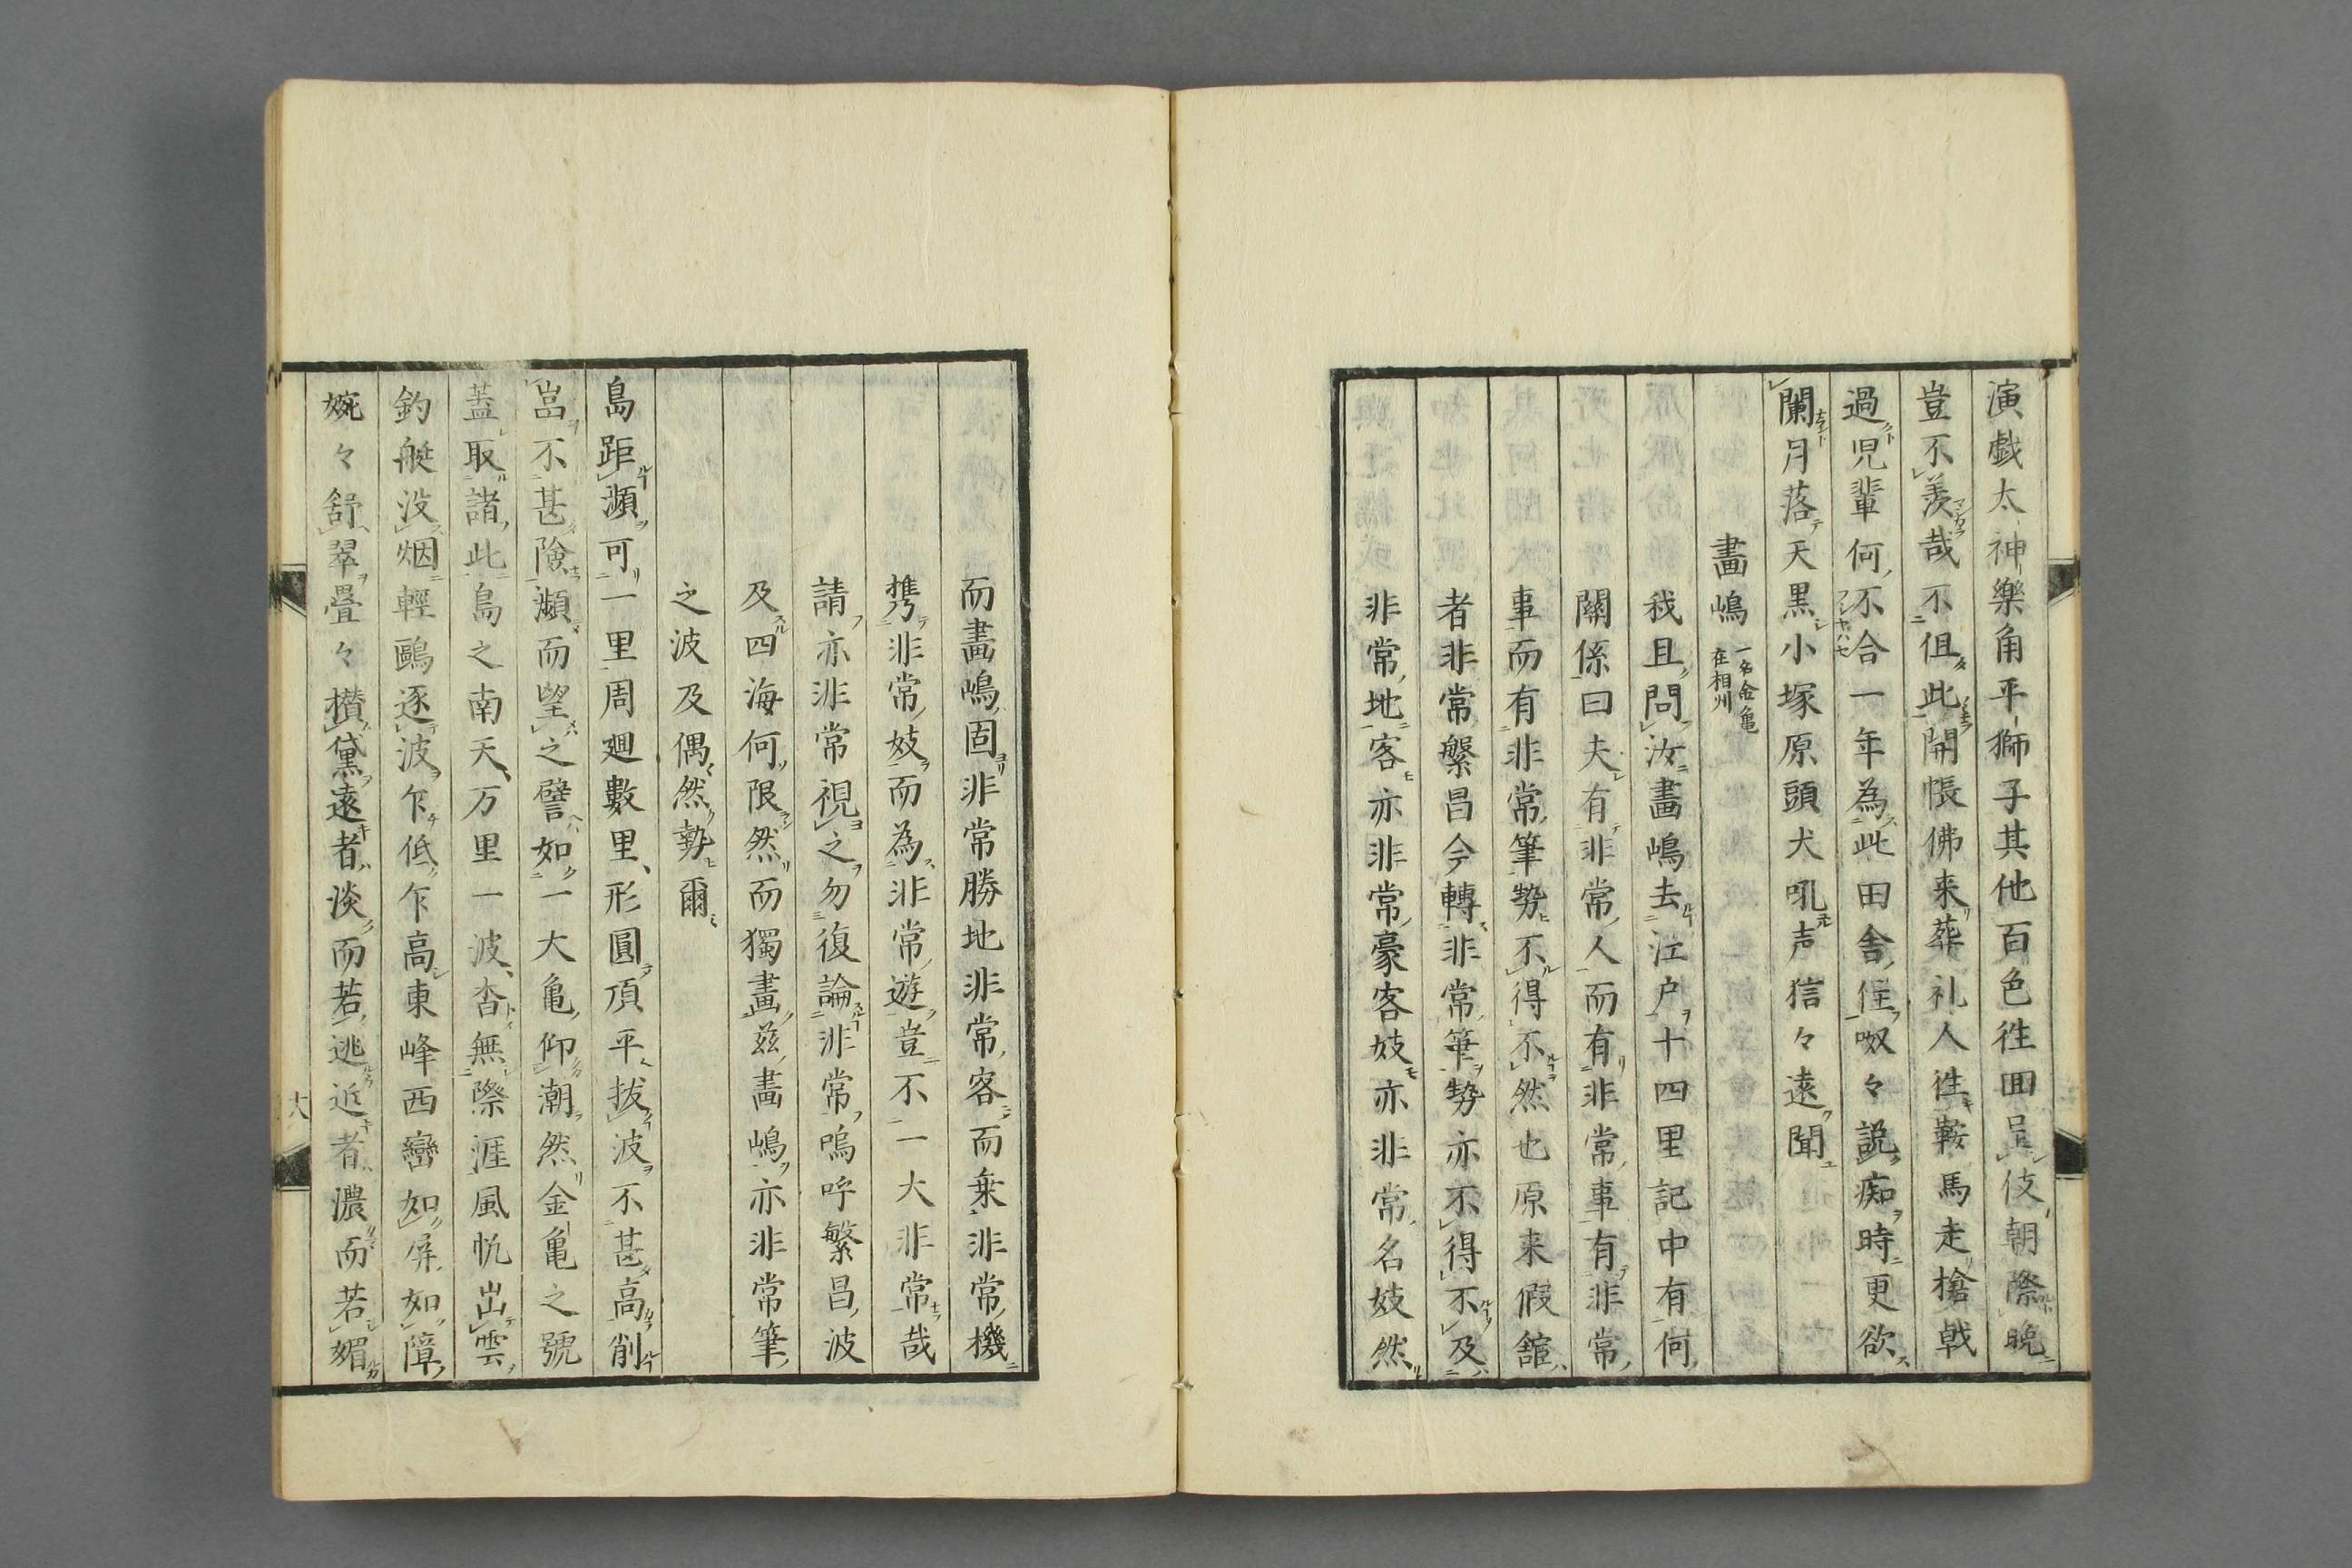 演戯太神樂角平獅子其他百色徃囬呈伎朝際晩
豈不羨哉不但此開帳佛来葬礼人徃鞍馬走槍戟
過児輩何不合一年為此田舎住呶々説痴時更欲
闌月落天黒小塚原頭犬吼声狺々遠聞
畫嶋 一名金亀
在相州
我且問汝畫嶋去江户十四里記中有何
關係曰夫有非常人而有非常事有非常
事而有非常筆勢不得不然也原来假舘
者非常槃昌今轉非常筆勢亦不得不及
非常地客亦非常豪客妓亦非常名妓然
而畫嶋固非常勝地非常客而乗非常機
携非常妓而為非常遊豈不一大非常哉
請亦非常視之勿復論非常嗚呼繁昌波
及四海何限然而獨畫玆畫嶋亦非常筆
之波及偶然勢爾
島距瀕可一里周廻數里形圓頂平拔波不甚高削
岊不甚險瀕而望之譬如一大亀仰潮然金亀之號
蓋取諸此島之南天万里一波杳無際涯風帆出雲
釣艇没烟輕鷗逐波乍低乍高東峰西巒如屏如障
婉々舒翠疊々攅黛遠者淡而若逃近者濃而若媚
十八